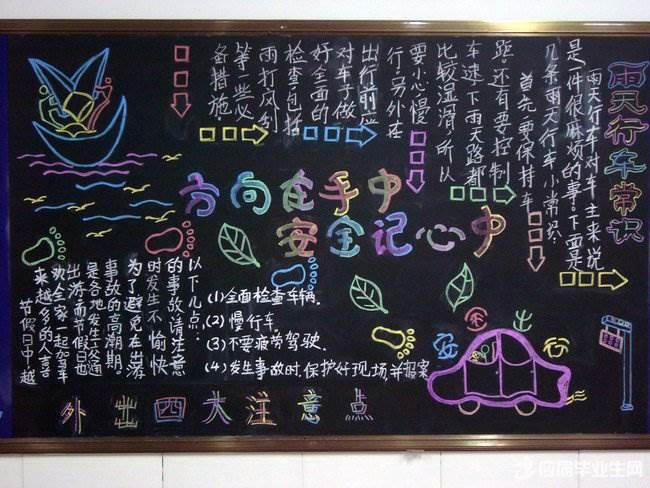 雨天行车常识
雨天行车对车主来说
是一件很麻烦的事!下面是
几条雨天行车小常识.
首先,要保持车
距,还有要控制
车速,下雨天路都
比较湿滑,所以
要小心慢
行,另外在
出行前应
对车子做
好全面的
检查,包括
雨打风刮
等一些必
备措施
方向在手中
安全记心中
节假日中越
来越多的人喜
欢全家一起驾车
出游,而节假日也
是各地发生交通
事故的高潮期。
为了避免在出游
时发生不愉快
的事故请注意
以下几点:
(1)全面检查车辆.
(2)慢行车.
(3)不要疲劳驾驶.
(4)发生事故时,保护好现场,并报案
外出四大注意点
安全出行
应届毕业生网